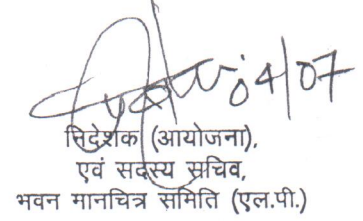 04/07
निदेशक (आयोजना),
एवं सदस्य सचिव,
भवन मानचित्र समिति (एल.पी.)